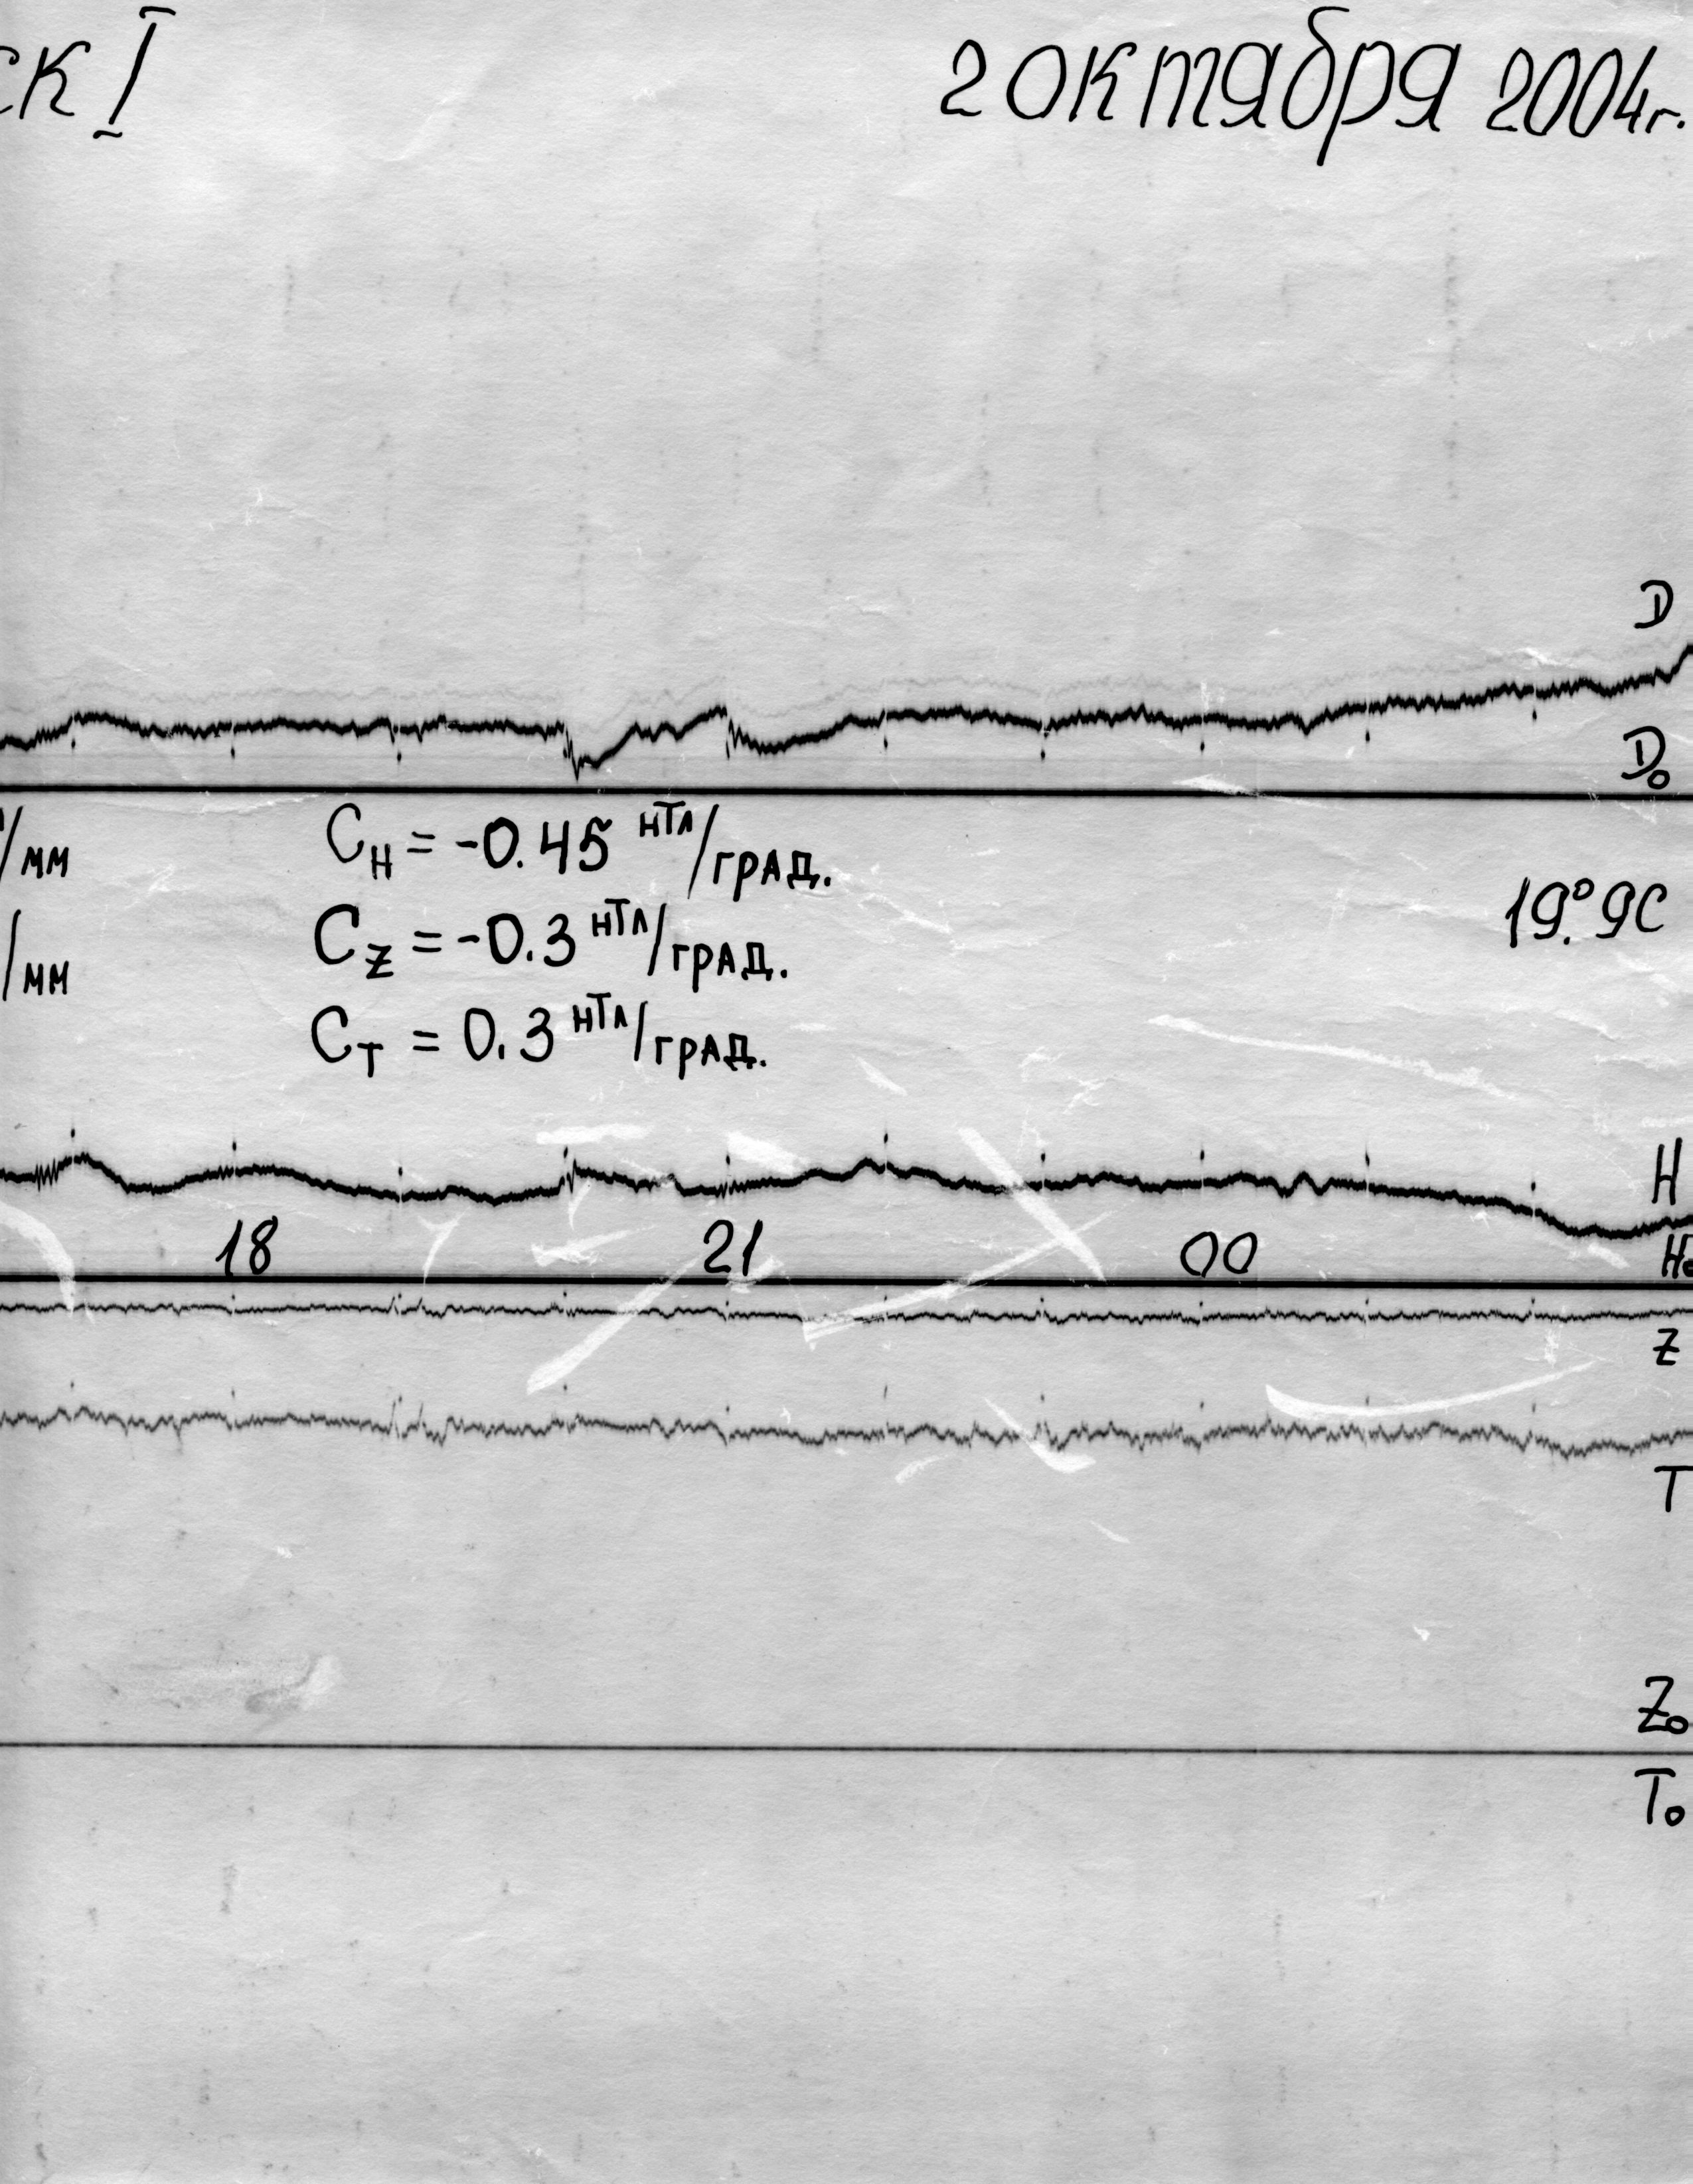 ск I 2 октября 2004г.
D
D₀
/мм Cн = -0.45 нТл/град.
19.°9С
/мм Cz = -0.3 нТл/град.
Cт = 0.3 нТл/град.
H
18 21 00 H₀
Z
T
Z₀
T₀